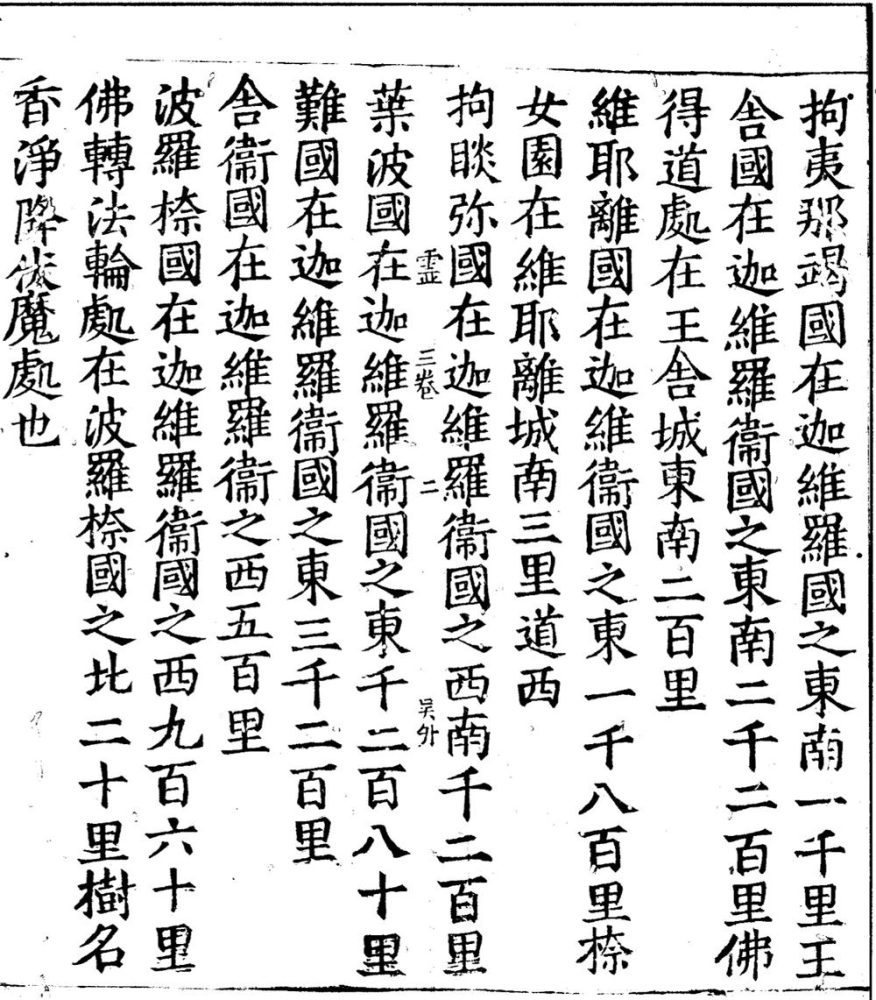 拘夷那竭國在迦維羅國之東南一千里王
舎國在迦維羅衞國之東南二千二百里佛
得道處在王舎城東南二百里
維耶離國在迦維衞國之東一千八百里㮈
女園在維耶離城南三里道西
拘睒弥國在迦維羅衞國之西南千二百里
霊 三巻 二 吴外
葉波國在迦維羅衞國之東千二百八十里
難國在迦維羅衞國之東三千二百里
舎衞國在迦維羅衞之西五百里
波羅㮈國在迦維羅衞國之西九百六十里
佛轉法輪處在波羅㮈國之北二十里樹名
香淨降伏魔處也